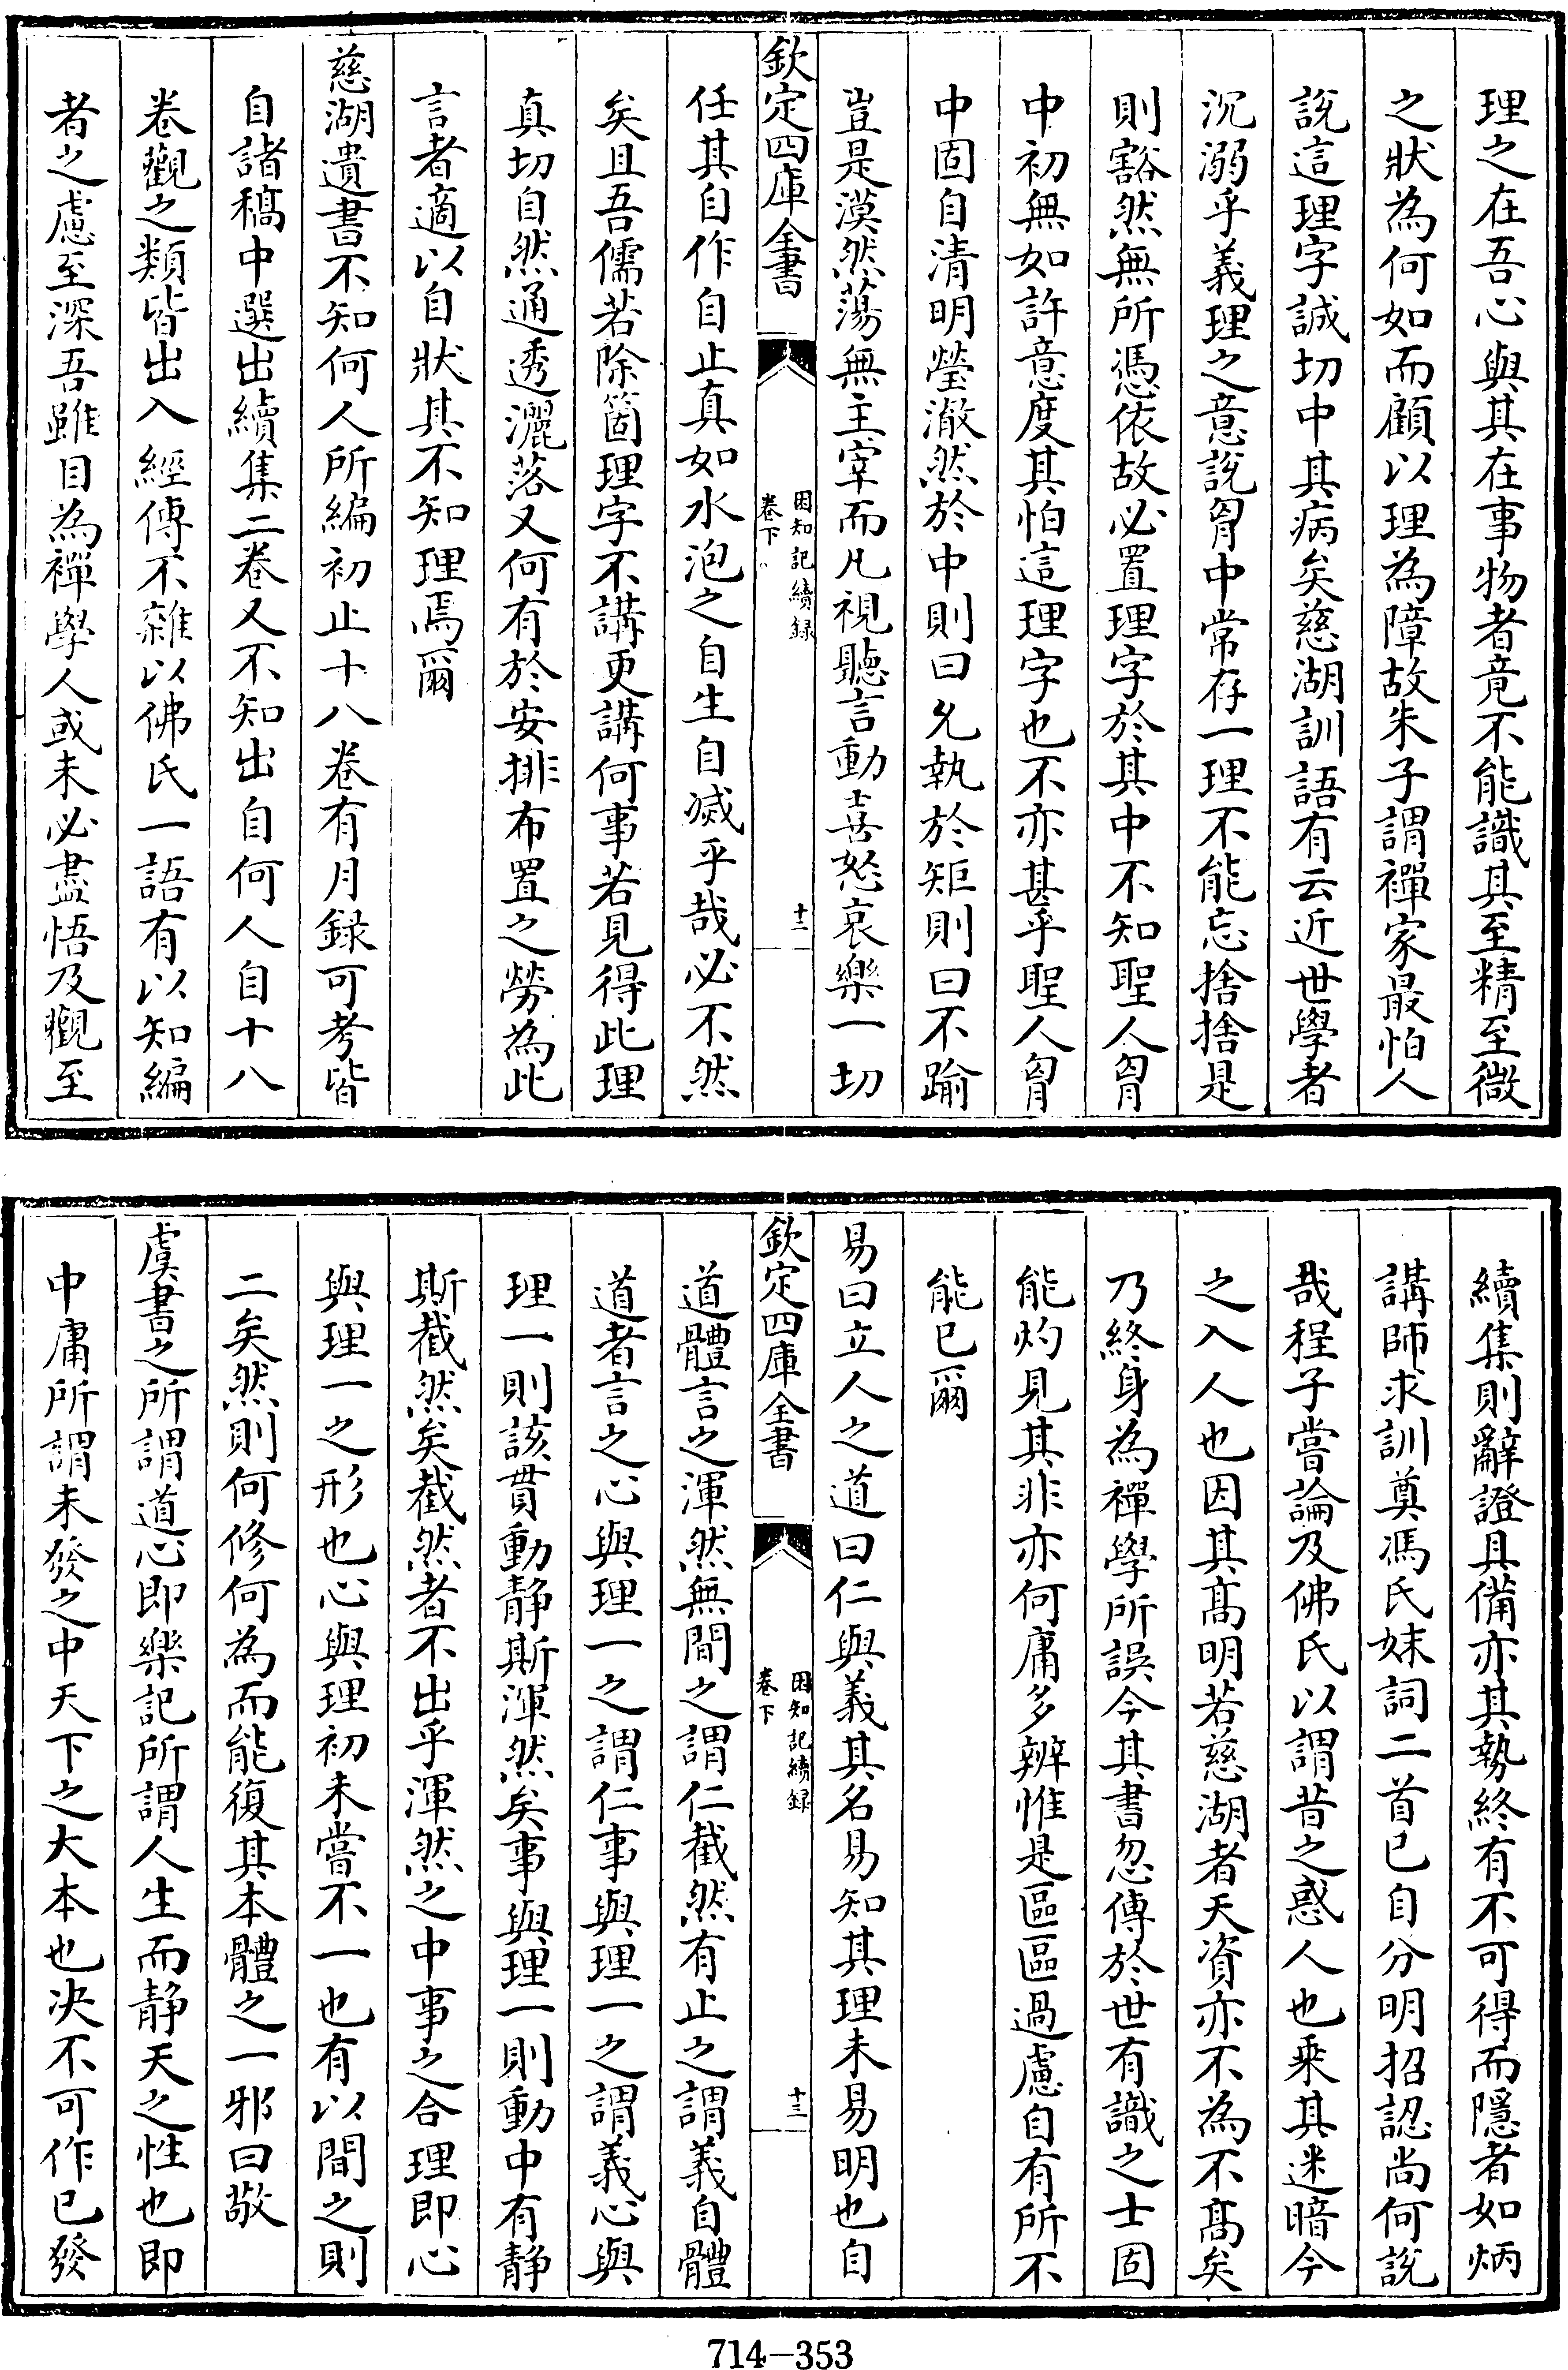 理之在吾心與其在事物者竟不能識其至精至微
之狀為何如而顧以理為障故朱子謂禪家最怕人
說這理字誠切中其病矣慈湖訓語有云近世學者
沉溺乎義理之意說胷中常存一理不能忘捨捨是
則豁然無所憑依故必置理字於其中不知聖人胷
中初無如許意度其怕這理字也不亦甚乎聖人胷
中固自清明瑩澈然於中則曰允執於矩則曰不踰
豈是漠然蕩無主宰而凡視聽言動喜怒哀樂一切
欽定四庫全書
困知記續録
卷下
十二
任其自作自止真如水泡之自生自滅乎哉必不然
矣且吾儒若除箇理字不講更講何事若見得此理
真切自然通透灑落又何有於安排布置之勞為此
言者適以自狀其不知理焉爾
慈湖遺書不知何人所編初止十八卷有月録可考皆
自諸稿中選出續集二卷又不知出自何人自十八
卷觀之類皆出入經傳不雜以佛氏一語有以知編
者之慮至深吾雖目為禪學人或未必盡悟及觀至
續集則辭證具備亦其勢終有不可得而隱者如炳
講師求訓奠馮氏妹詞二首已自分明招認尚何說
哉程子嘗論及佛氏以謂昔之惑人也乘其迷暗今
之入人也因其髙明若慈湖者天資亦不為不髙矣
乃終身為禪學所誤今其書忽傳於世有識之士固
能灼見其非亦何庸多辨惟是區區過慮自有所不
能已爾
易曰立人之道曰仁與義其名易知其理未易明也自
欽定四庫全書
困知記續録
卷下
十三
道體言之渾然無間之謂仁截然有止之謂義自體
道者言之心與理一之謂仁事與理一之謂義心與
理一則該貫動靜斯渾然矣事與理一則動中有靜
斯截然矣截然者不出乎渾然之中事之合理即心
與理一之形也心與理初未嘗不一也有以間之則
二矣然則何修何為而能復其本體之一邪曰敬
虞書之所謂道心即樂記所謂人生而靜天之性也即
中庸所謂未發之中天下之大本也决不可作已發
714-353